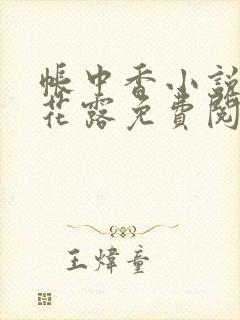 帳中香小說
花露免費閱
王煒童